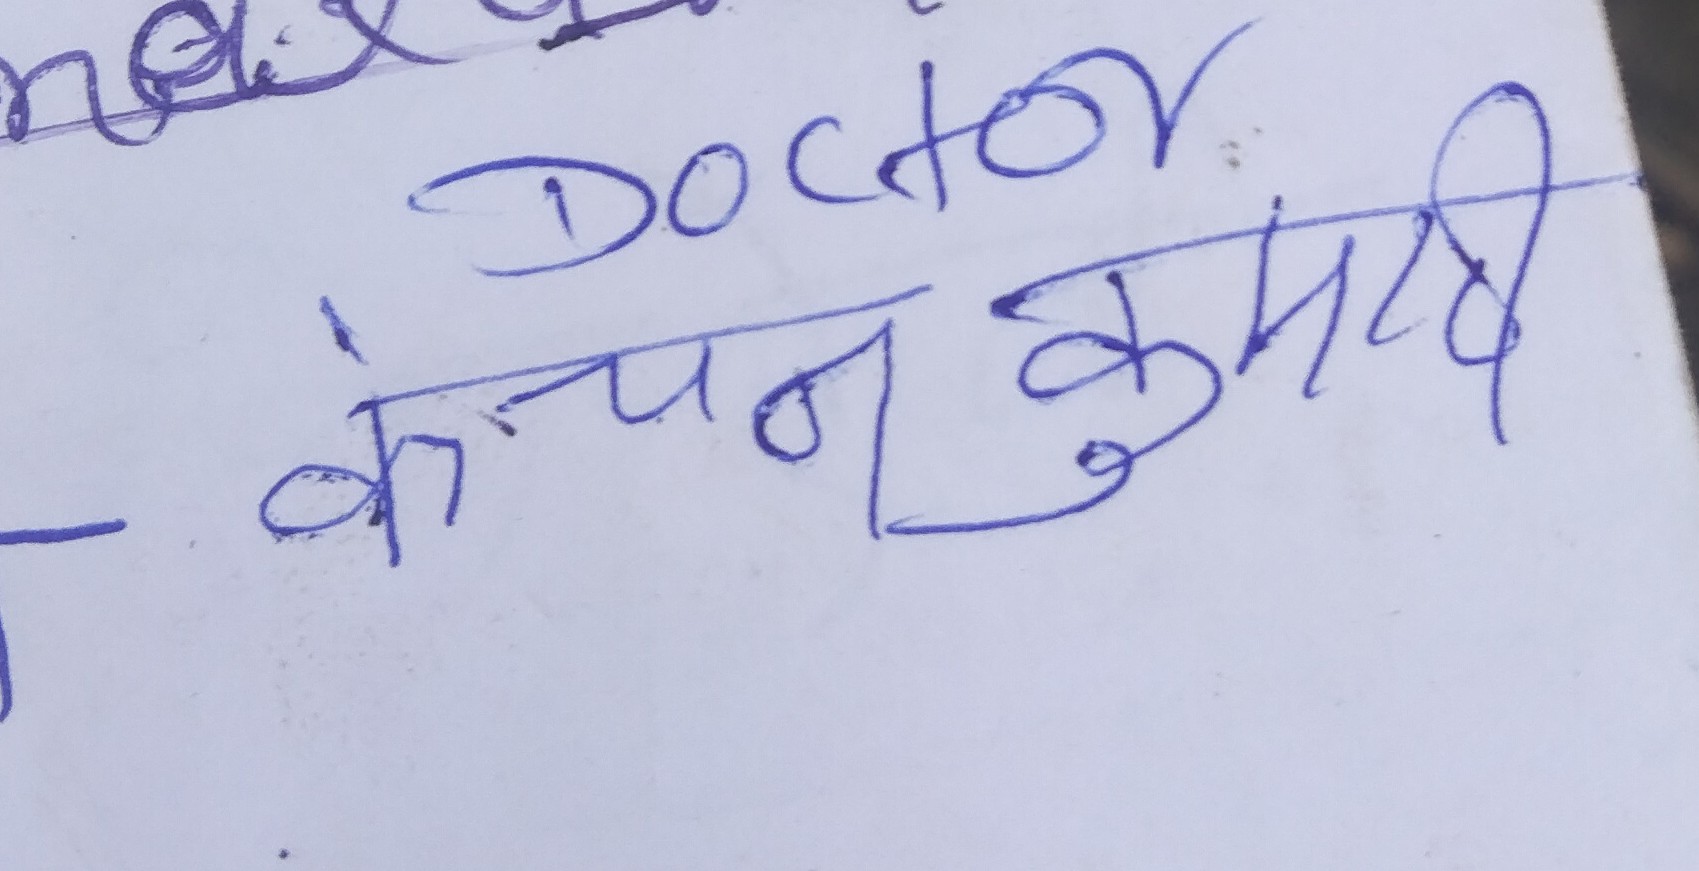 Doctor
कंचन कुमारी